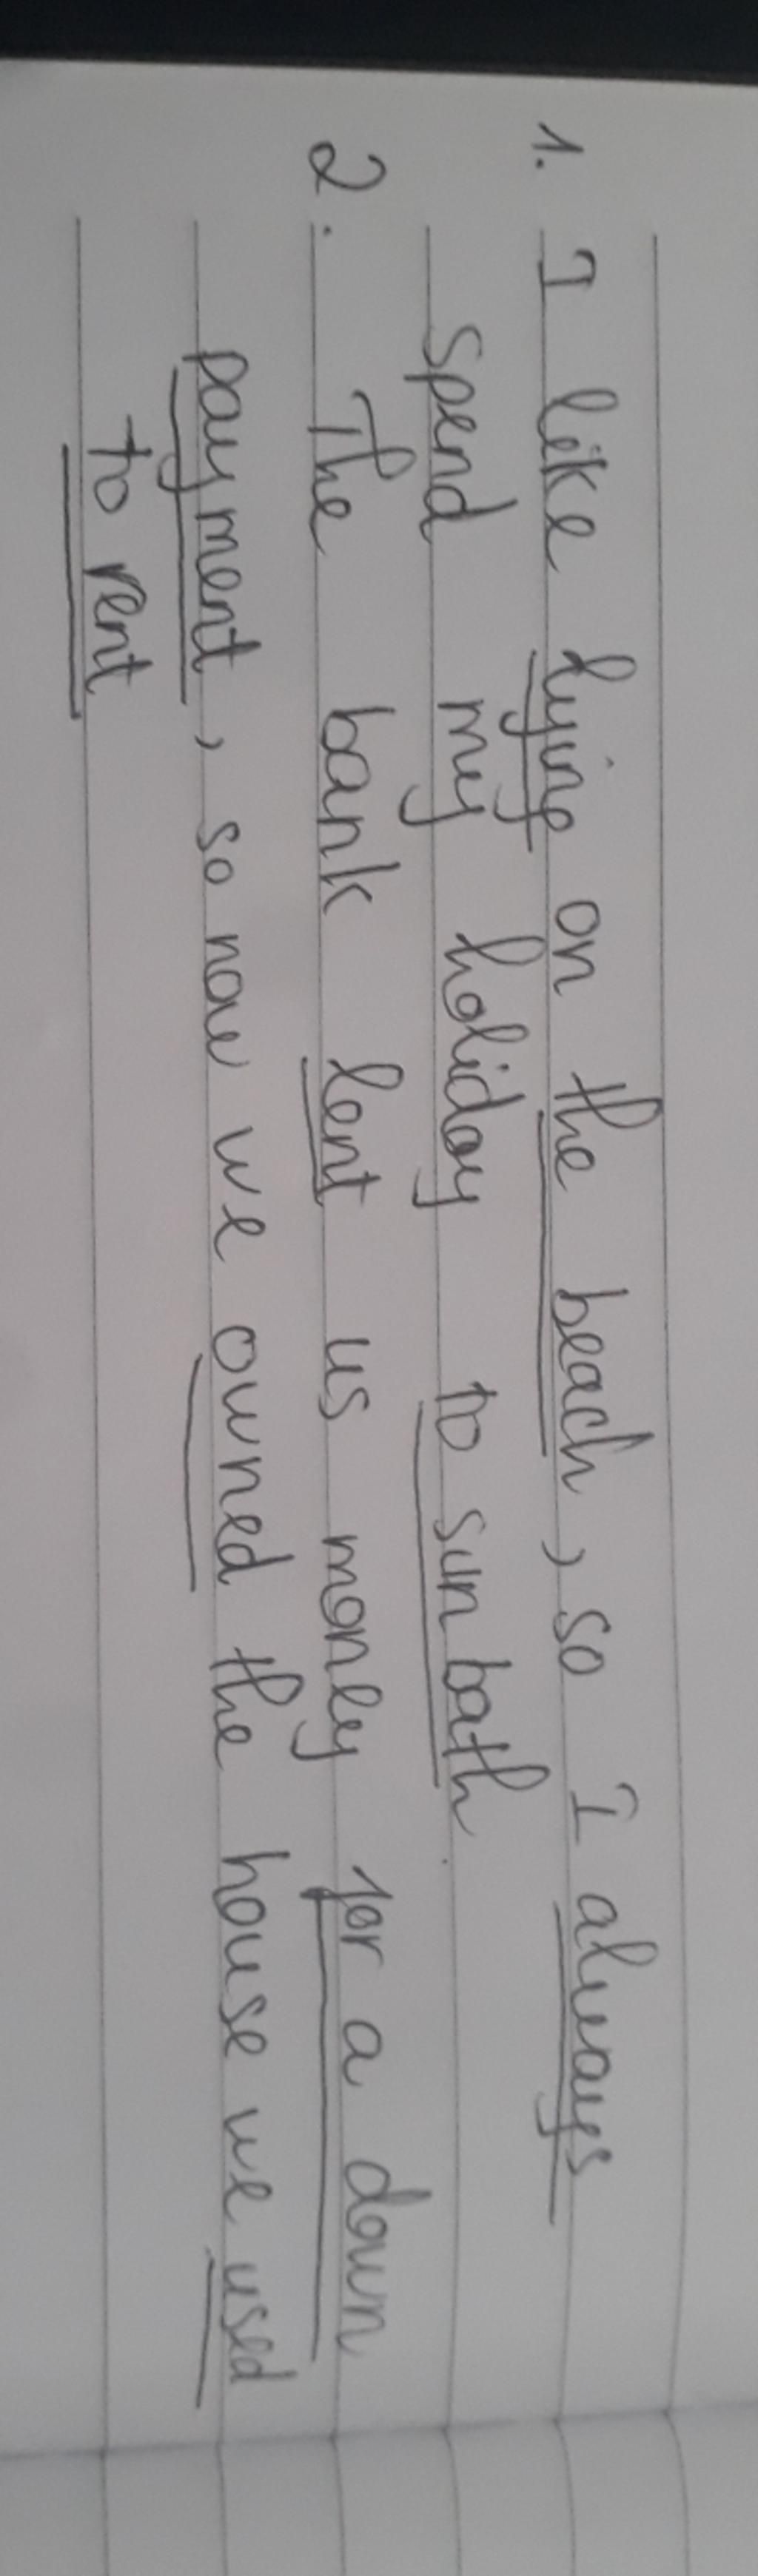 1. I like lying on the beach, so I always
spend my holiday to sun bath.
2. The bank lent us money for a down
payment, so now we owned the house we used
to rent